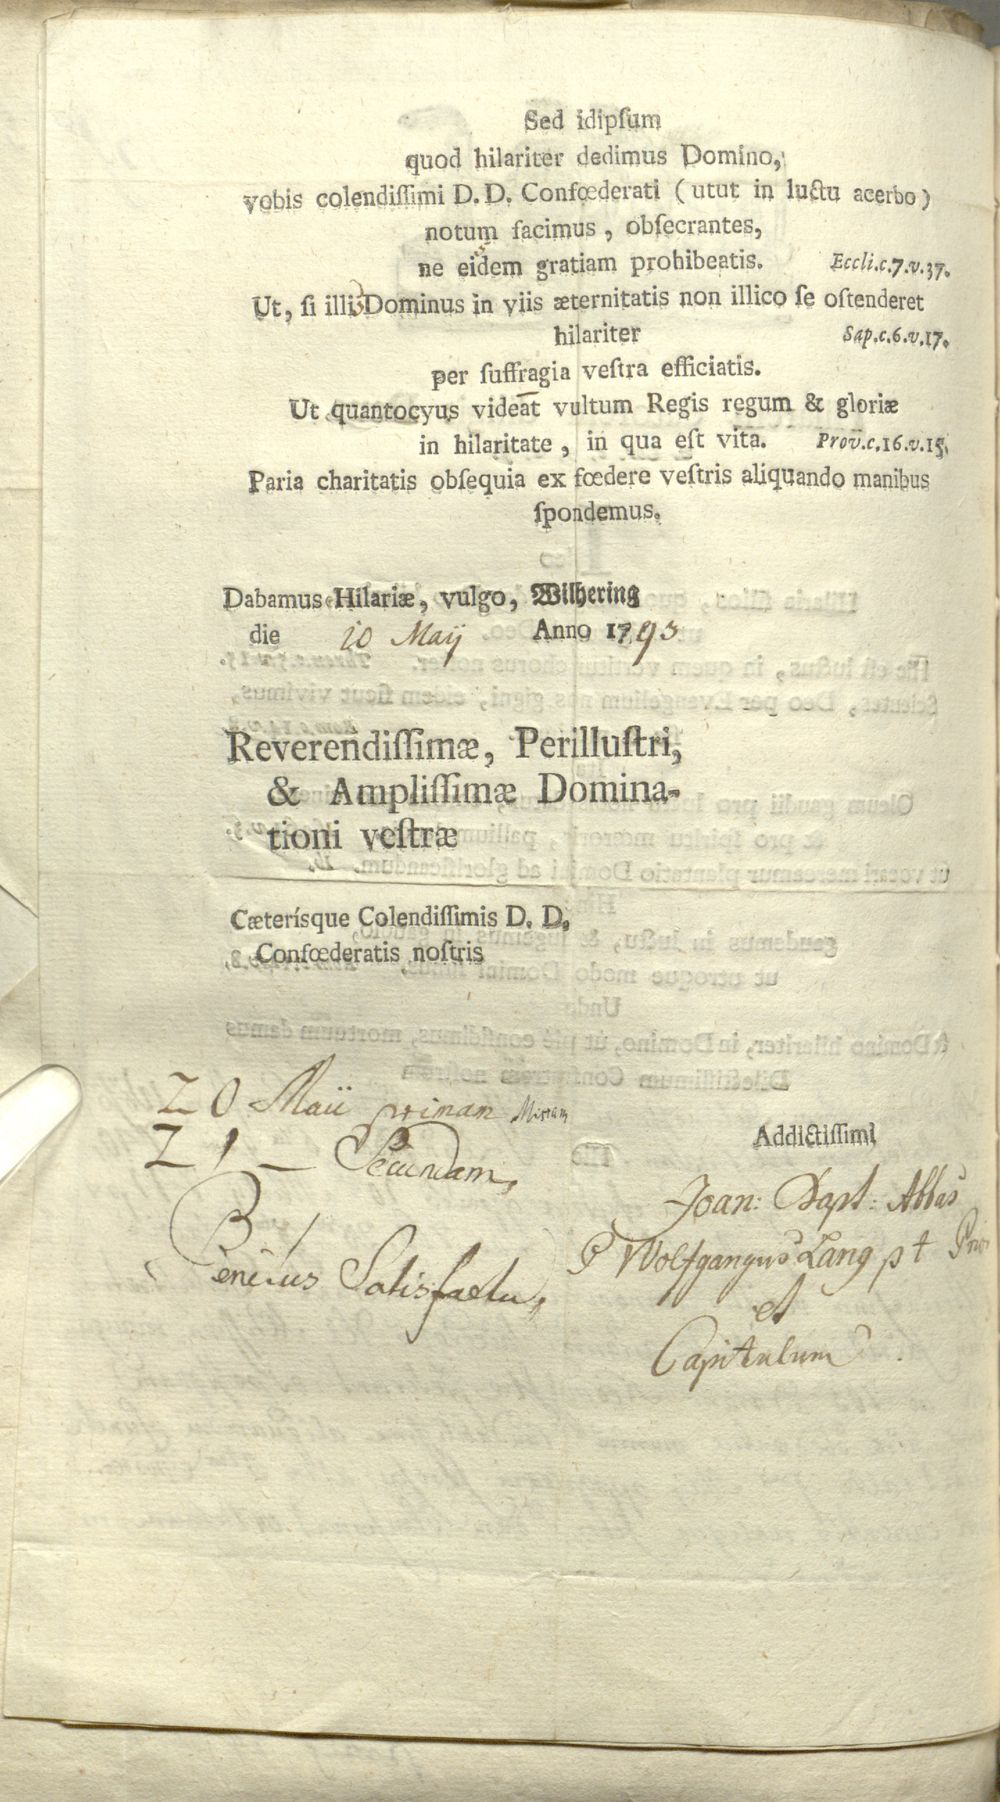 Sed idipſum
quod hilariter dedimus Domino,
vobis colendiſſimi D. D. Confœderati ( utut in luctu acerbo )
notum facimus , obſecrantes,
ne eidem gratiam prohibeatis. Eccli.c.7.v.37.
Ut, ſi illi Dominus in viis æternitatis non illico ſe oſtenderet
hilariter Sap.c.6.v.17.
per ſuffragia veſtra efficiatis.
Ut quantocyus videat vultum Regis regum & gloriæ
in hilaritate , in qua eſt vita. Prov.c.16.v.15.
Paria charitatis obſequia ex fœdere veſtris aliquando manibus
ſpondemus.
Dabamus Hilariæ, vulgo, Wilhering
die 10 Maij Anno 1793
Reverendiſſimæ, Perilluſtri,
& Ampliſſimæ Domina-
tioni veſtræ
Cæterísque Colendiſſimis D. D.
Confœderatis noſtris
20 Maii primam Missam
21 — Secundam,
Addictiſſimi
Joan: Bapt: Abbas
P Wolfgangus Lang p t
et
Capitulum
Satisfactu